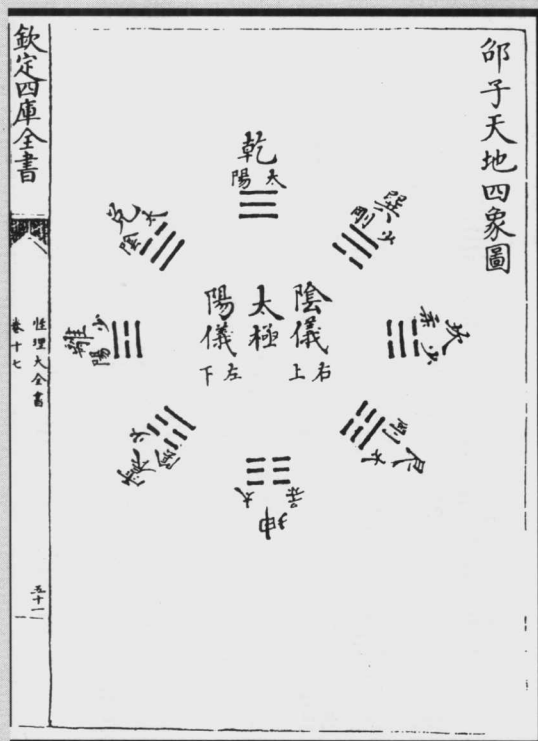 邵子天地四象圖
乾
太陽
巽
少剛
坎
少柔
艮
太剛
坤
太柔
震
少陰
離
少陽
兌
太陰
陰儀
右上
太極
陽儀
左下
欽定四庫全書
性理大全書
卷十七
五十一